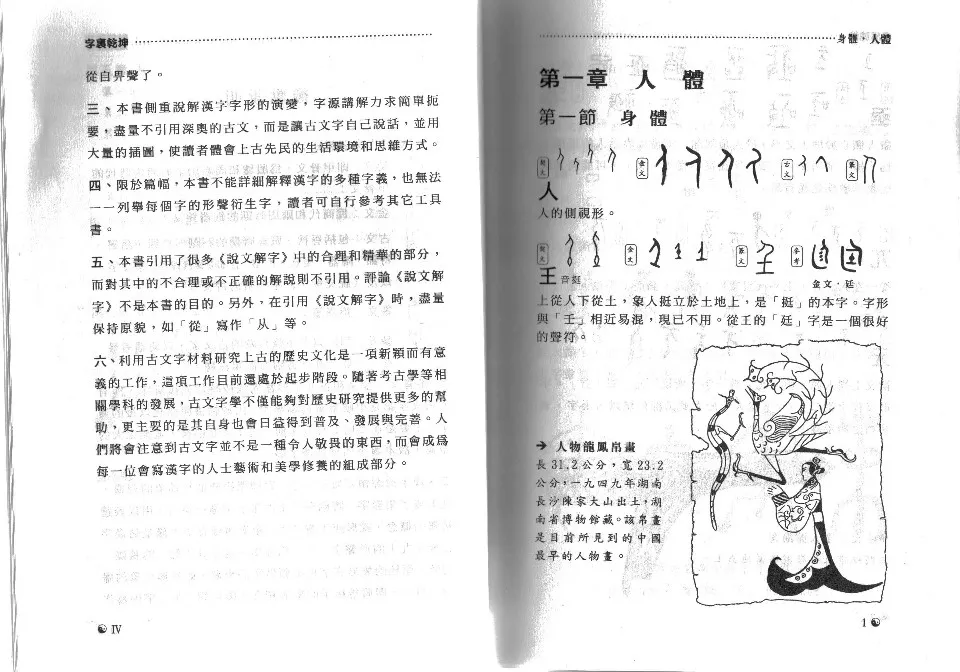 字裏乾坤
從自畀聲了。
三、本書側重說解漢字字形的演變，字源講解力求簡單扼
要，盡量不引用深奧的古文，而是讓古文字自己說話，並用
大量的插圖，使讀者體會上古先民的生活環境和思維方式。
四、限於篇幅，本書不能詳細解釋漢字的多種字義，也無法
一一列舉每個字的形聲衍生字，讀者可自行參考其它工具
書。
五、本書引用了很多《說文解字》中的合理和精華的部分，
而對其中的不合理或不正確的解說則不引用。評論《說文解
字》不是本書的目的。另外，在引用《說文解字》時，盡量
保持原貌，如「從」寫作「从」等。
六、利用古文字材料研究上古的歷史文化是一項新穎而有意
義的工作，這項工作目前還處於起步階段。隨著考古學等相
關學科的發展，古文字學不僅能夠對歷史研究提供更多的幫
助，更主要的是其自身也會日益得到普及、發展與完善。人
們將會注意到古文字並不是一種令人敬畏的東西，而會成為
每一位會寫漢字的人士藝術和美學修養的組成部分。
IV
身體·人體
第一章 人 體
第一節 身 體
金文 古文 篆文
人
人的側視形。
金文 篆文 參考
𡈼 音挺
金文·廷
上從人下從土，象人挺立於土地上，是「挺」的本字。字形
與「壬」相近易混，現已不用。從𡈼的「廷」字是一個很好
的聲符。
→ 人物龍鳳帛畫
長31.2公分，寬23.2
公分，一九四九年湖南
長沙陳家大山出土，湖
南省博物館藏。該帛畫
是目前所見到的中國
最早的人物畫。
1